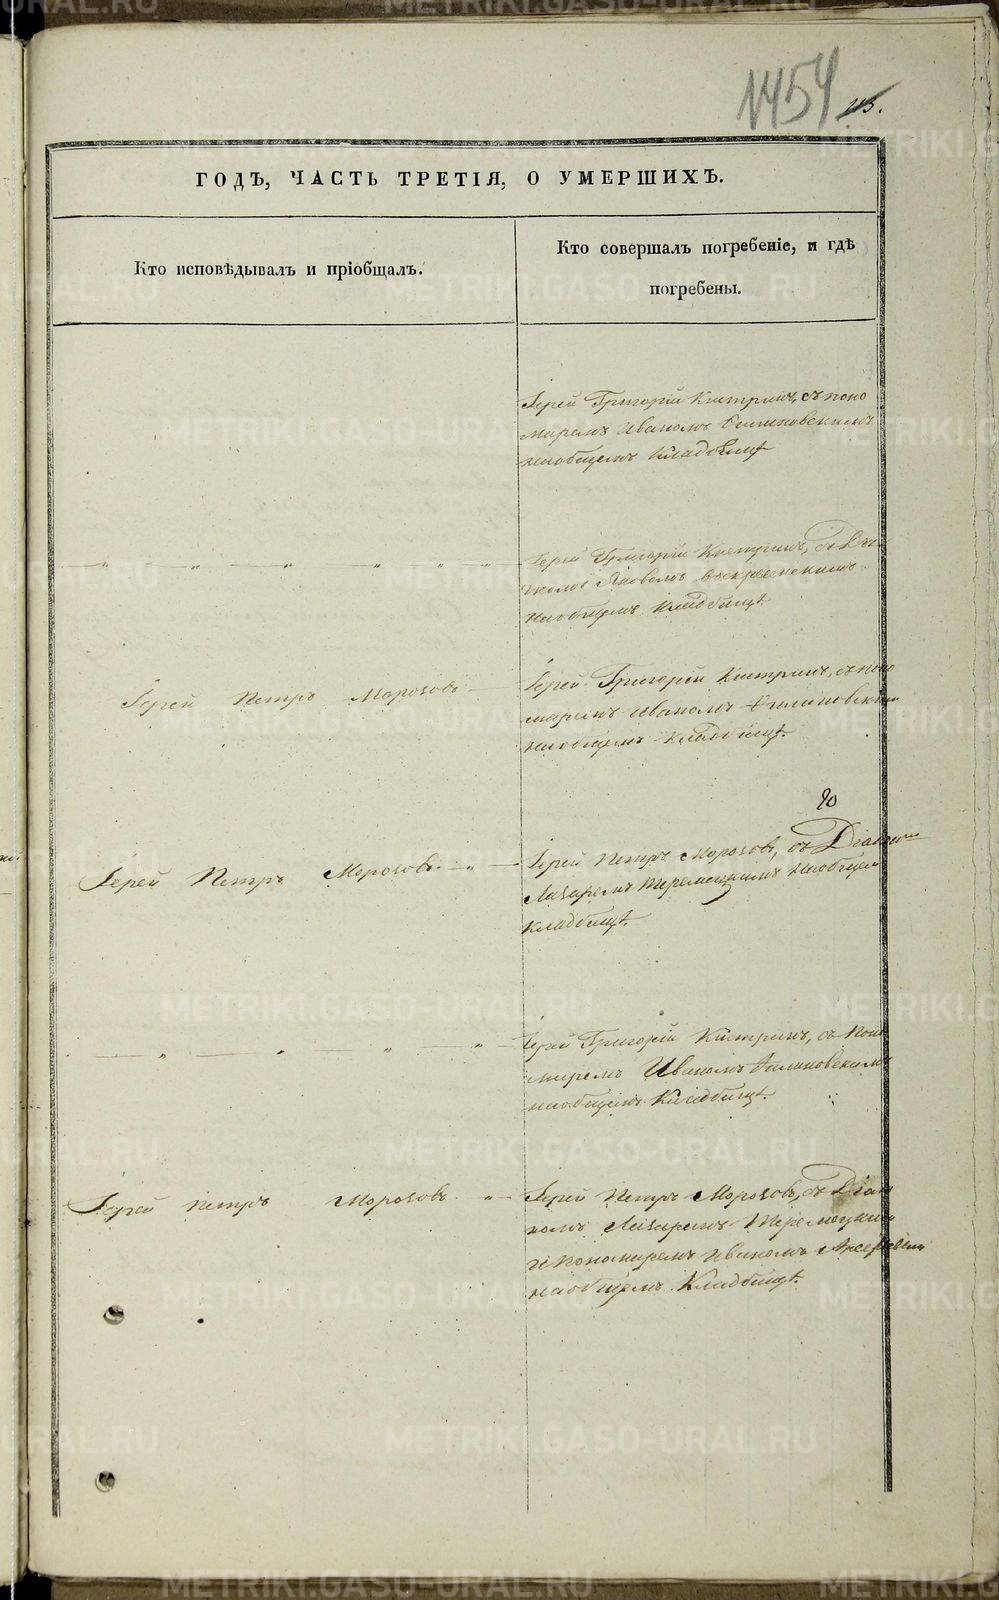 1454
ГОДЪ, ЧАСТЬ ТРЕТІЯ, О УМЕРШИХЪ.
Кто исповѣдывалъ и пріобщалъ.
Кто совершалъ погребеніе, и гдѣ
погребены.
Іерей Григорій Кистринъ, съ поно
маремъ Иваномъ
на общемъ Кладбищѣ
Іерей Григорій Кистринъ, съ Дья
комъ Яковомъ Воскресенскимъ
на общемъ Кладбищѣ.
Іерей Петръ Морозовъ
Іерей Григорій Кистринъ, съ поно
маремъ Иваномъ
на общемъ кладбищѣ.
Іерей Петръ Морозовъ
Іерей Петръ Морозовъ, съ Діакономъ
Лазаремъ на общемъ
кладбищѣ.
Іерей Григорій Кистринъ, съ поно
маремъ Иваномъ
на общемъ Кладбищѣ.
Іерей Петръ Морозовъ
Іерей Петръ Морозовъ, съ Діако
номъ Лазаремъ
и пономаремъ Иваномъ
на общемъ Кладбищѣ.
METRIKI.GASO-URAL.RU